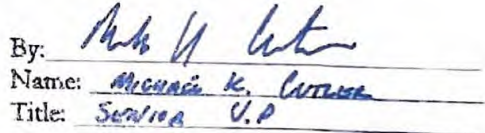 By:
Name: Michael K. Cutler
Title: Senior V.P